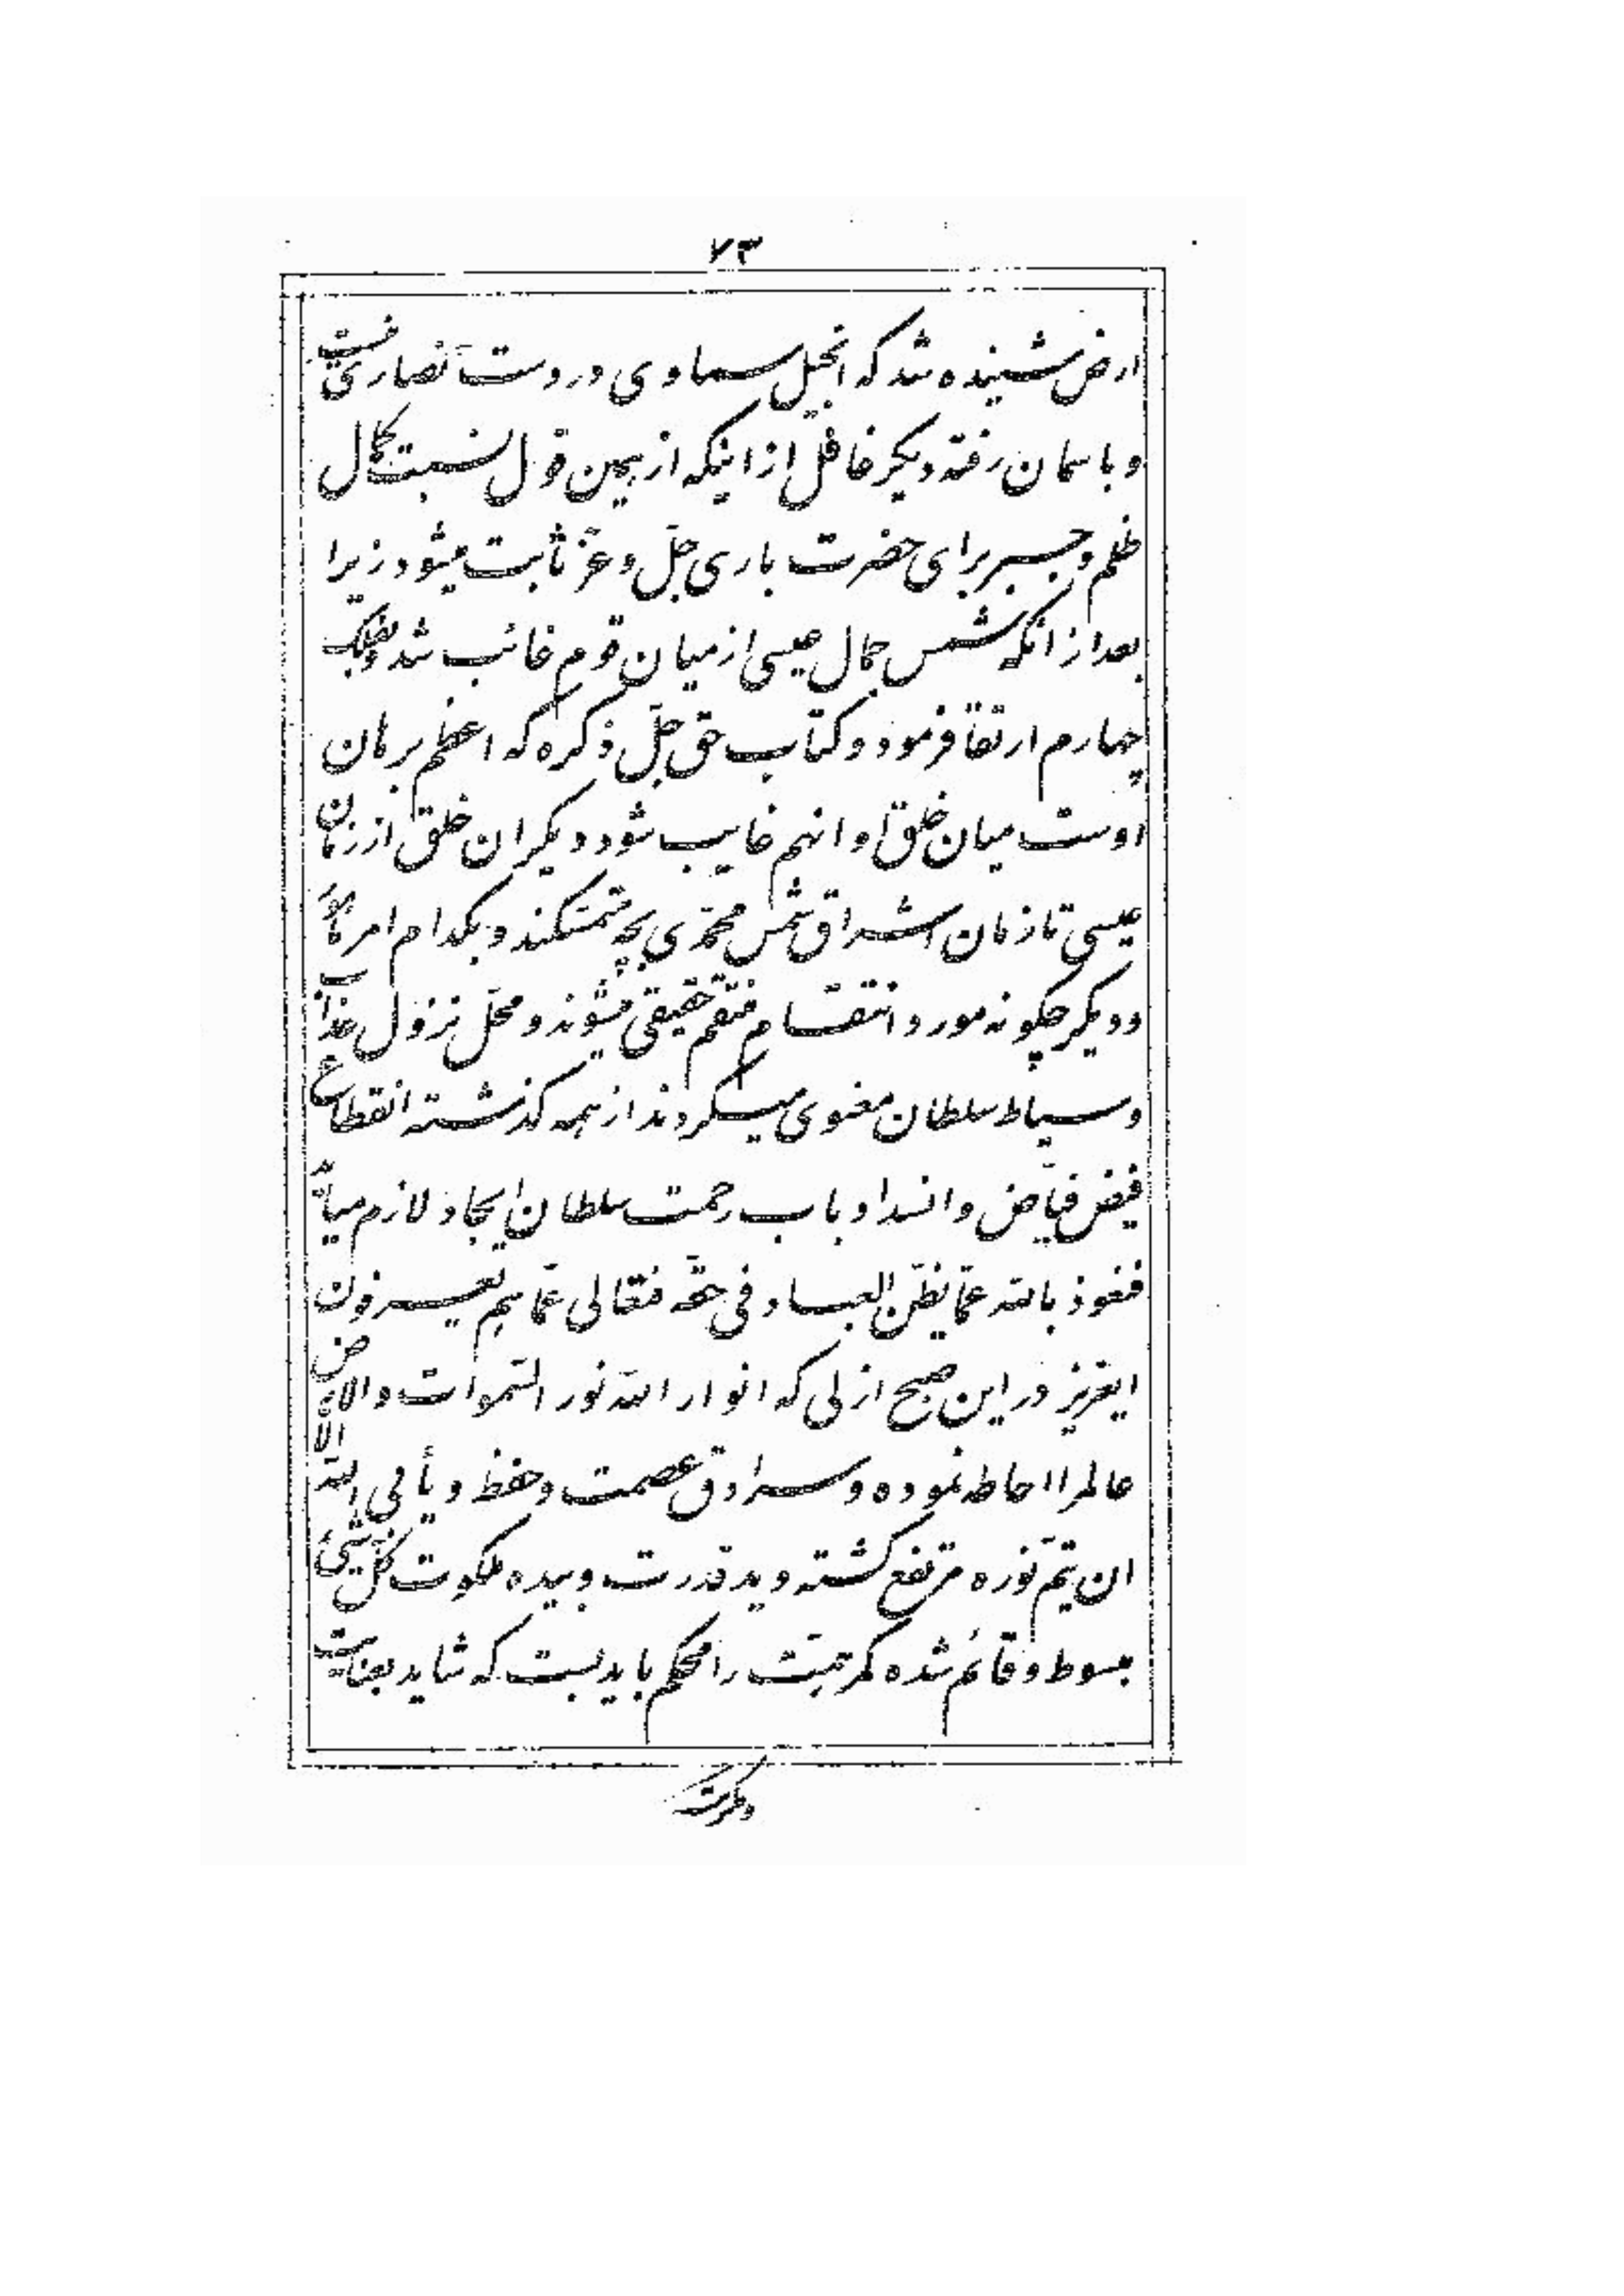 ۷۳
ارض شنیده شد که انجیل سماوی در دست نصاری نیست
و باسمان رفته دیگر غافل از اینکه از همین قول نسبت کمال
ظلم و جبر برای حضرت باری جلّ و عزّ ثابت میشود زیرا
بعد از انکه شمس جمال عیسی از میان قوم غائب شد و بفلک
چهارم ارتقا فرمود و کتاب حق جلّ ذکره که اعظم برهان
اوست میان خلق او انهم غایب شود دیگر ان خلق از زمان
عیسی تا زمان اشراق شمس محمّدی بچه متمسّکند و بکدام امر مأمور
و دیگر چگونه مورد انتقام منتقم حقیقی میشوند و محلّ نزول عذاب
و سیاط سلطان معنوی میگردند از همه گذشته انقطاع
فیض فیّاض و انسداد باب رحمت سلطان ایجاد لازم میاید
فنعوذ باللّه عمّا یظنّ العباد فی حقّه فتعالی عمّا هم یعرفون
ایعزیز در این صبح ازلی که انوار اللّه نور السّموات و الارض
عالمرا احاطه نموده و سرادق عصمت و حفظ و یأبی اللّه الّا
ان یتمّ نوره مرتفع گشته و ید قدرت و بیده ملکوت کلّ شیئ
مبسوط و قائم شده کمر همّت را محکم باید بست که شاید بعنایت